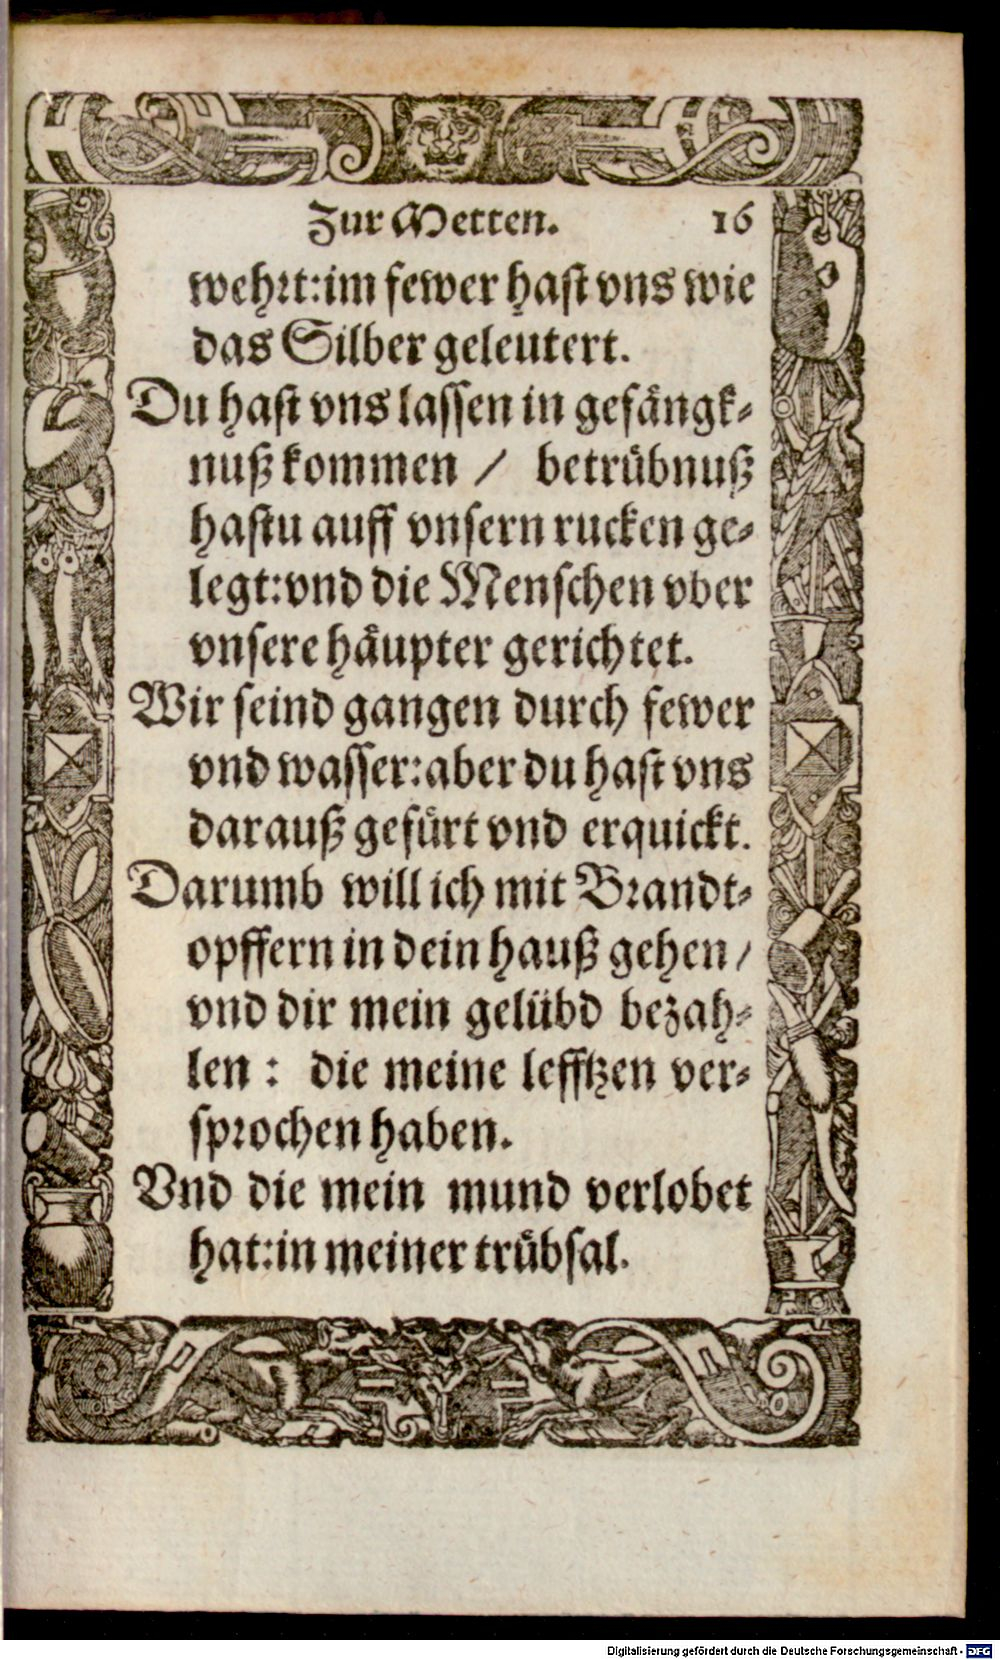 Zur Metten. 16
wehrt: im fewer hast vns wie
das Silber geleutert.
Du hast vns lassen in gefängk-
nuß kommen / betrübnuß
hastu auff vnsern rucken ge-
legt: vnd die Menschen vber
vnsere häupter gerichtet.
Wir seind gangen durch fewer
vnd wasser: aber du hast vns
darauß gefürt vnd erquickt.
Darumb will ich mit Brandt-
opffern in dein hauß gehen /
vnd dir mein gelübd bezah-
len : die meine lefftzen ver-
sprochen haben.
Vnd die mein mund verlobet
hat: in meiner trübsal.
Digitalisierung gefördert durch die Deutsche Forschungsgemeinschaft - DFG